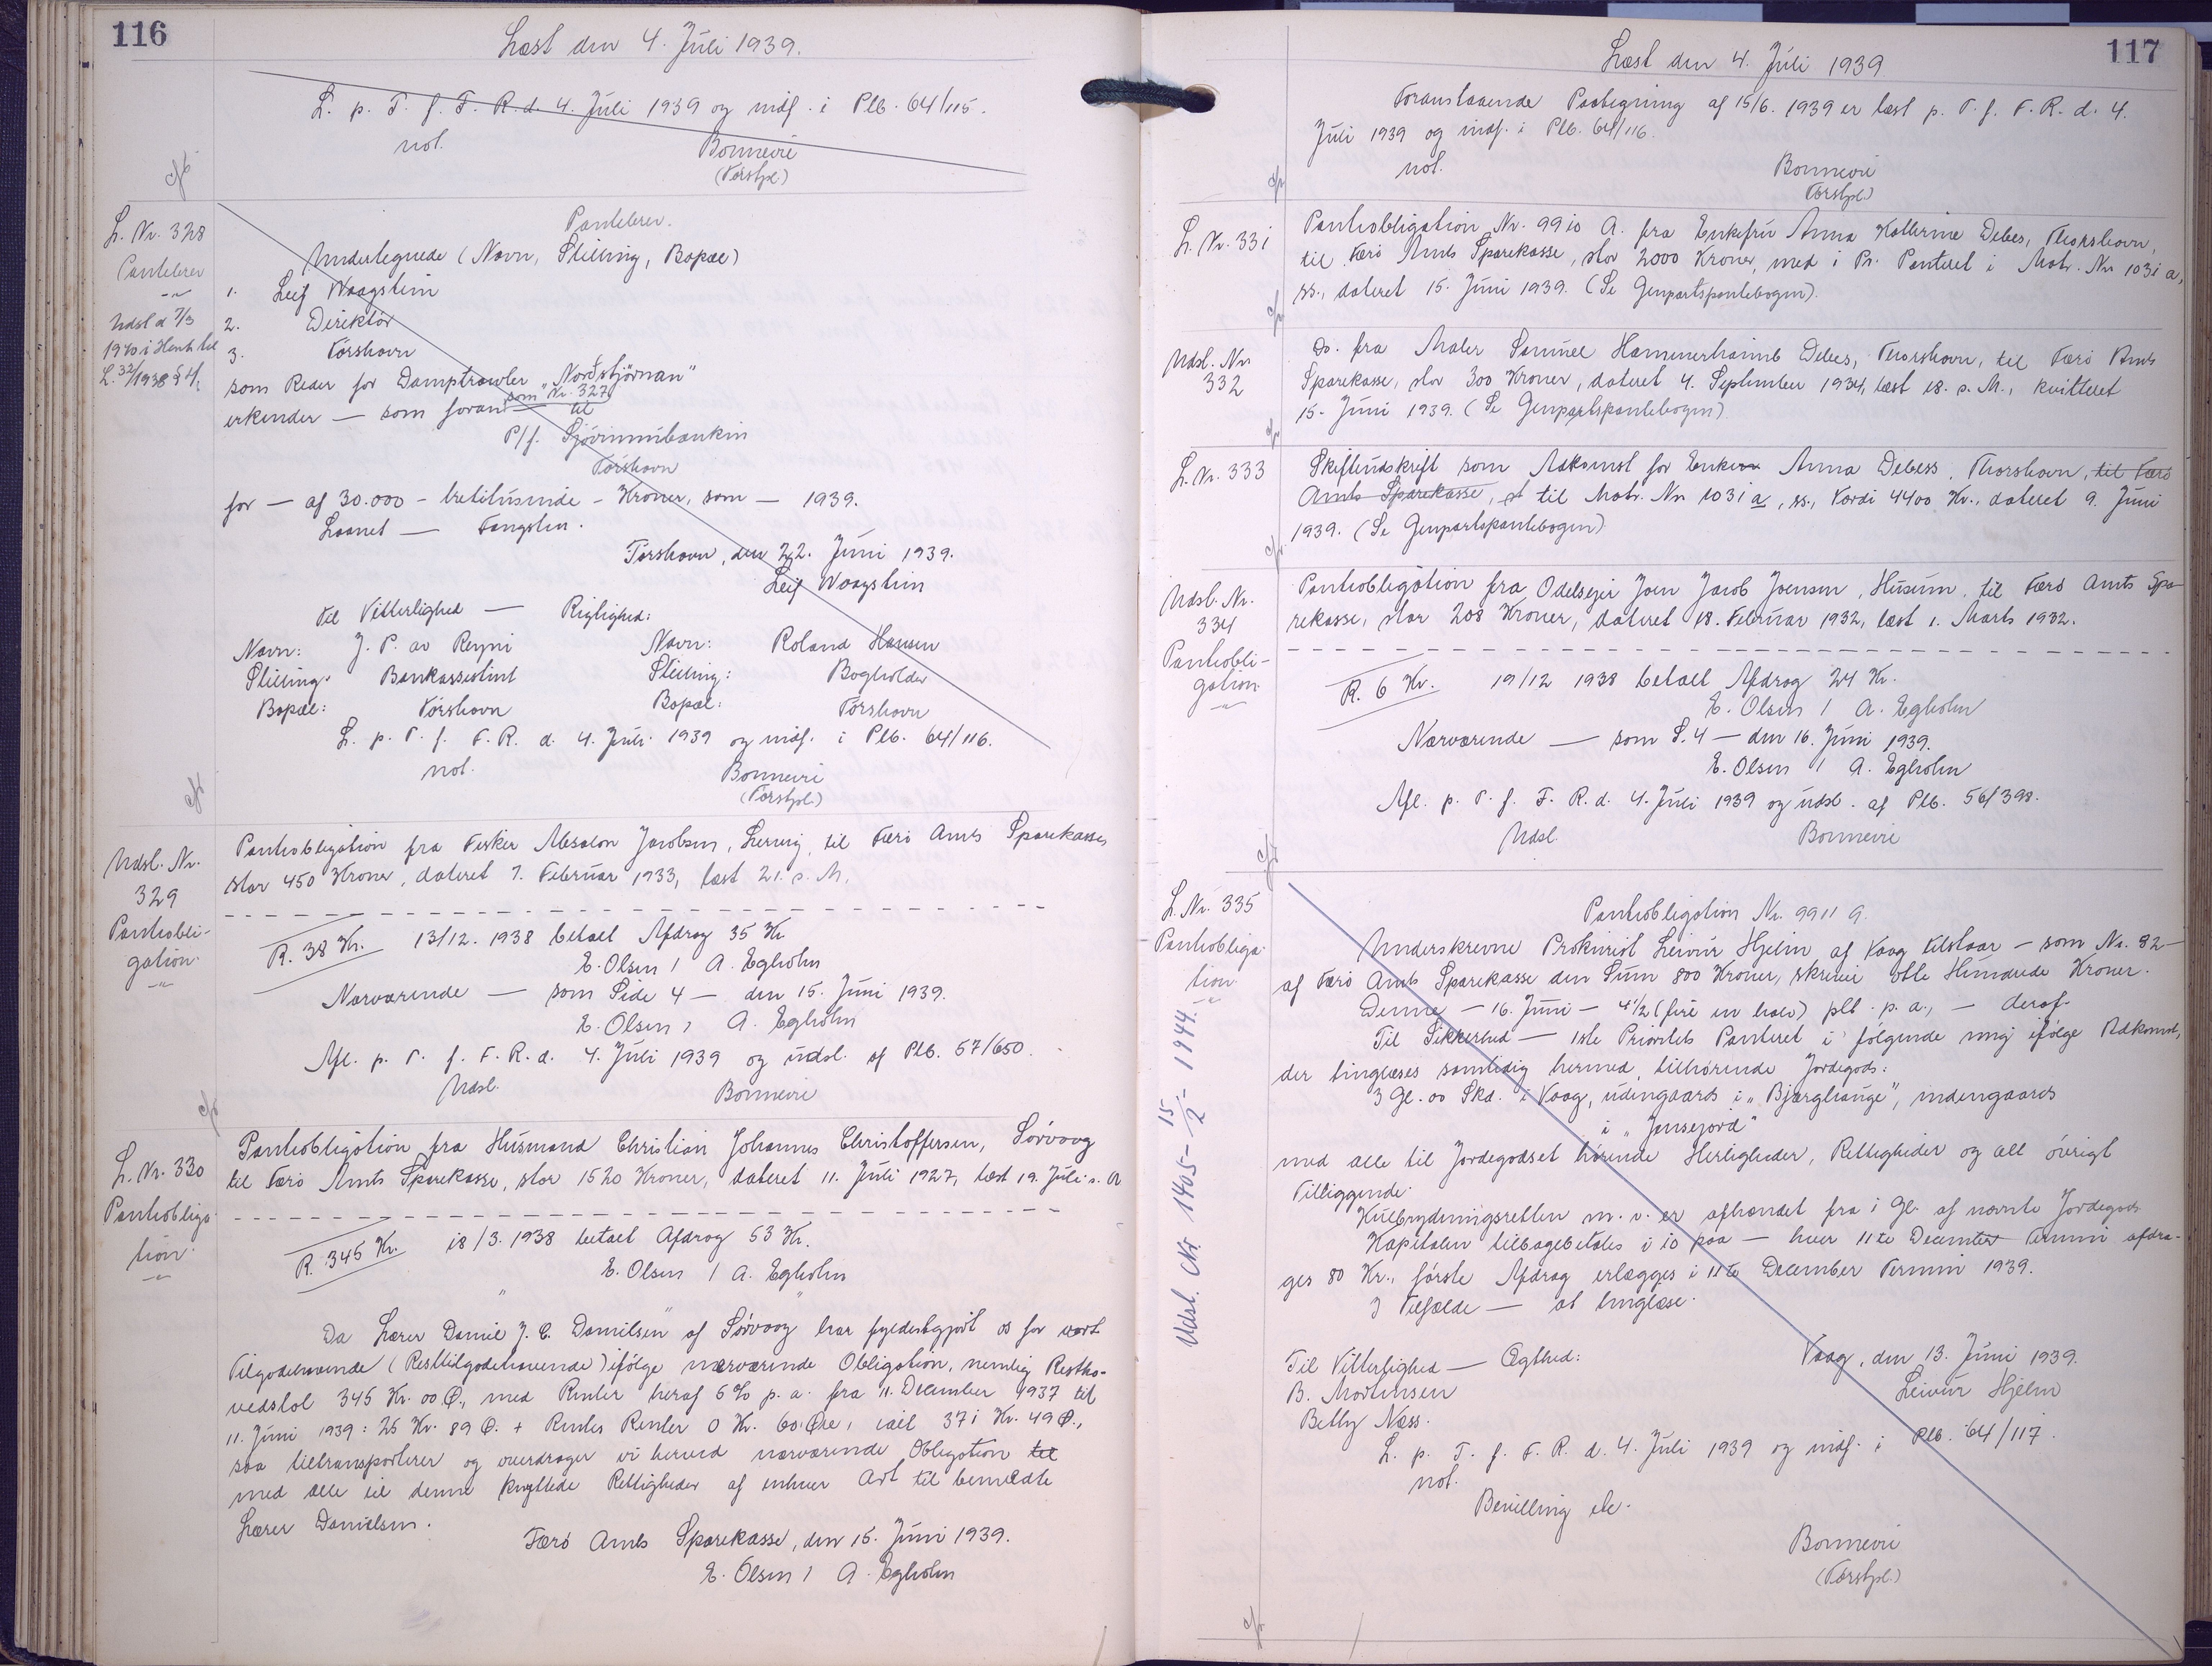 116
Læst den 4. Juli 1939.
L. p. T. f. F. R. d. 4. Juli 1939 og indf. i Plb. 64/115.
not.
Bonnevie
(Forstpl.)
L. Nr. 328
Pantebrev
Udsl d 7/3
1940 i Henh til
Pantebrev.
Undertegnede (Navn, Stilling, Bopæl)
1. Leif Waagstein
2. Direktør
3. Tórshavn
som Reder for Damptrawler „Nordstjörnan"
som Nr. 327
erkender — som foran — til
P/f. Sjóvinnubankin
Tórshavn
for — af 30.000 - tretitusinde - Kroner, som — 1939.
Laanet — Fangsten.
Tórshavn, den 22. Juni 1939.
Leif Waagstein
Til Vitterlighed — Rigtighed:
Navn: J. P. av Reyni Navn: Roland Hansen
Stilling: Bankassistent Stilling: Bogholder
Bopæl: Tórshavn Bopæl: Tórshavn
L. p. T. f. F. R. d. 4. Juli 1939 og indf. i Plb. 64/116.
not.
Bonnevie
(Forstpl.)
Udsl. Nr.
329
Pantobli-
gation.
Pantobligation fra Fisker Absalon Jacobsen, Lervig, til Færø Amts Sparekasse
stor 450 Kroner, dateret 7. Februar 1933, læst 21. s. M.
R. 38 Kr. 13/12. 1938 betalt Afdrag 35 Kr
E. Olsen / A. Egholm
Nærværende — som Side 4 — den 15. Juni 1939.
E. Olsen / A. Egholm
Afl. p. T. f. F. R. d. 4. Juli 1939 og udsl. af Plb. 57/650.
Udsl.
Bonnevie
L. Nr. 330
Pantobliga-
tion.
Pantobligation fra Husmand Christian Johannes Christoffersen, Sørvaag
til Færø Amts Sparekasse, stor 1520 Kroner, dateret 11. Juli 1927, læst 19. Juli s. A
R. 345 Kr. 18/3. 1938 betalt Afdrag 53 Kr.
E. Olsen / A. Egholm
Da Lærer Daniel J. C. Danilsen af Sørvaag har fyldestgjort os for vort
Tilgodehavende (Resttilgodehavende) ifølge nærværende Obligation, nemlig Restho-
vedstol 345 Kr. 00 Ø., med Renter heraf 5 % p. a. fra 11. December 1937 til
11. Juni 1939: 25 Kr. 89 Ø. + Rentes Renter 0 Kr. 60 Øre, ialt 371 Kr. 49 Ø.,
saa tiltransporterer og overdrager vi herved nærværende Obligation til
med alle til denne knyttede Rettigheder af enhver Art til bemeldte
Lærer Danielsen.
Færø Amts Sparekasse, den 15. Juni 1939.
E. Olsen / A. Egholm
117
Læst den 4. Juli 1939
Foranstaaende Paategning af 15/6. 1939 er læst p. T. f. F. R. d. 4.
Juli 1939 og indf. i Plb. 64/116.
not.
Bonnevie
Forstpl.)
L. Nr. 331
Pantobligation Nr. 9910 A. fra Enkefru Anna Kathrine Debes, Thorshavn,
til Færø Amts Sparekasse, stor 2000 Kroner, med 1 Pr. Panteret i Matr. Nr 1031 a,
ss., dateret 15. Juni 1939. (Se Genpartspantebogen).
Udsl. Nr
332
Do. fra Maler Samuel Hammershaimb Debes, Thorshavn, til Færø Amts
Sparekasse, stor 300 Kroner, dateret 4. September 1934, læst 18. s. M., kvitteret
15. Juni 1939. (Se Genpartspantebogen)
L. Nr. 333
Skifteudskrift som Adkomst for Enken Anna Debess, Thorshavn, til Færø
Amts Sparekasse, st til Matr. Nr 1031 a, ss., Værdi 4400 Kr., dateret 9. Juni
1939. (Se Genpartspantebogen)
Udsl. Nr.
334
Pantobli-
gation.
Pantobligation fra Odelsejer Joen Jacob Joensen, Husum, til Færø Amts Spa-
rekasse, stor 208 Kroner, dateret 18. Februar 1932, læst 1. Marts 1932.
R. 6 Kr. 19/12 1938 betalt Afdrag 24 Kr.
E. Olsen / A. Egholm
Nærværende — som S. 4 — den 16. Juni 1939.
E. Olsen / A. Egholm
Afl. p. T. f. F. R. d. 4. Juli 1939 og udsl. af Plb. 56/398.
Udsl.
Bonnevie
L. Nr. 335
Pantobliga-
tion
Udsl. Nr 1405 - 15/2 - 1944.
Pantobligation Nr. 9911 A.
Underskrevne Prokurist Leivur Hjelm af Vaag tilstaar — som Nr. 82 —
af Færø Amts Sparekasse den Sum 800 Kroner, skriver otte Hundrede Kroner.
Denne — 16. Juni — 4½ (fire en halv) pCt. p. a., — deraf.
Til Sikkerhed — 1ste Prioritets Panteret i følgende mig ifølge Adkomst,
der tinglæses samtidig hermed, tilhørende Jordegods:
3 Gl. 00 Skd. i Vaag, udengaards i „Bjarghauge", indengaards
i „Jansejord"
med alle til Jordegodset hørende Herligheder, Rettigheder og alt øvrigt
Tilliggende.
Kulbrydningsretten m. v. er afhændet fra 1 Gl. af nævnte Jordegods.
Kapitalen tilbagebetales i 10 paa — hver 11te December Termin afdra-
ges 80 Kr., første Afdrag erlægges i 11te December Termin 1939.
I Tilfælde — at tinglæse.
Til Vitterlighed — Ægthed:
B. Mortensen
Betty Næss.
Vaag, den 13. Juni 1939.
Leivur Hjelm
L. p. T. f. F. R. d. 4. Juli 1939 og indf. i Plb. 64/117.
not.
Bevilling etc.
Bonnevie
(Forstpl.)